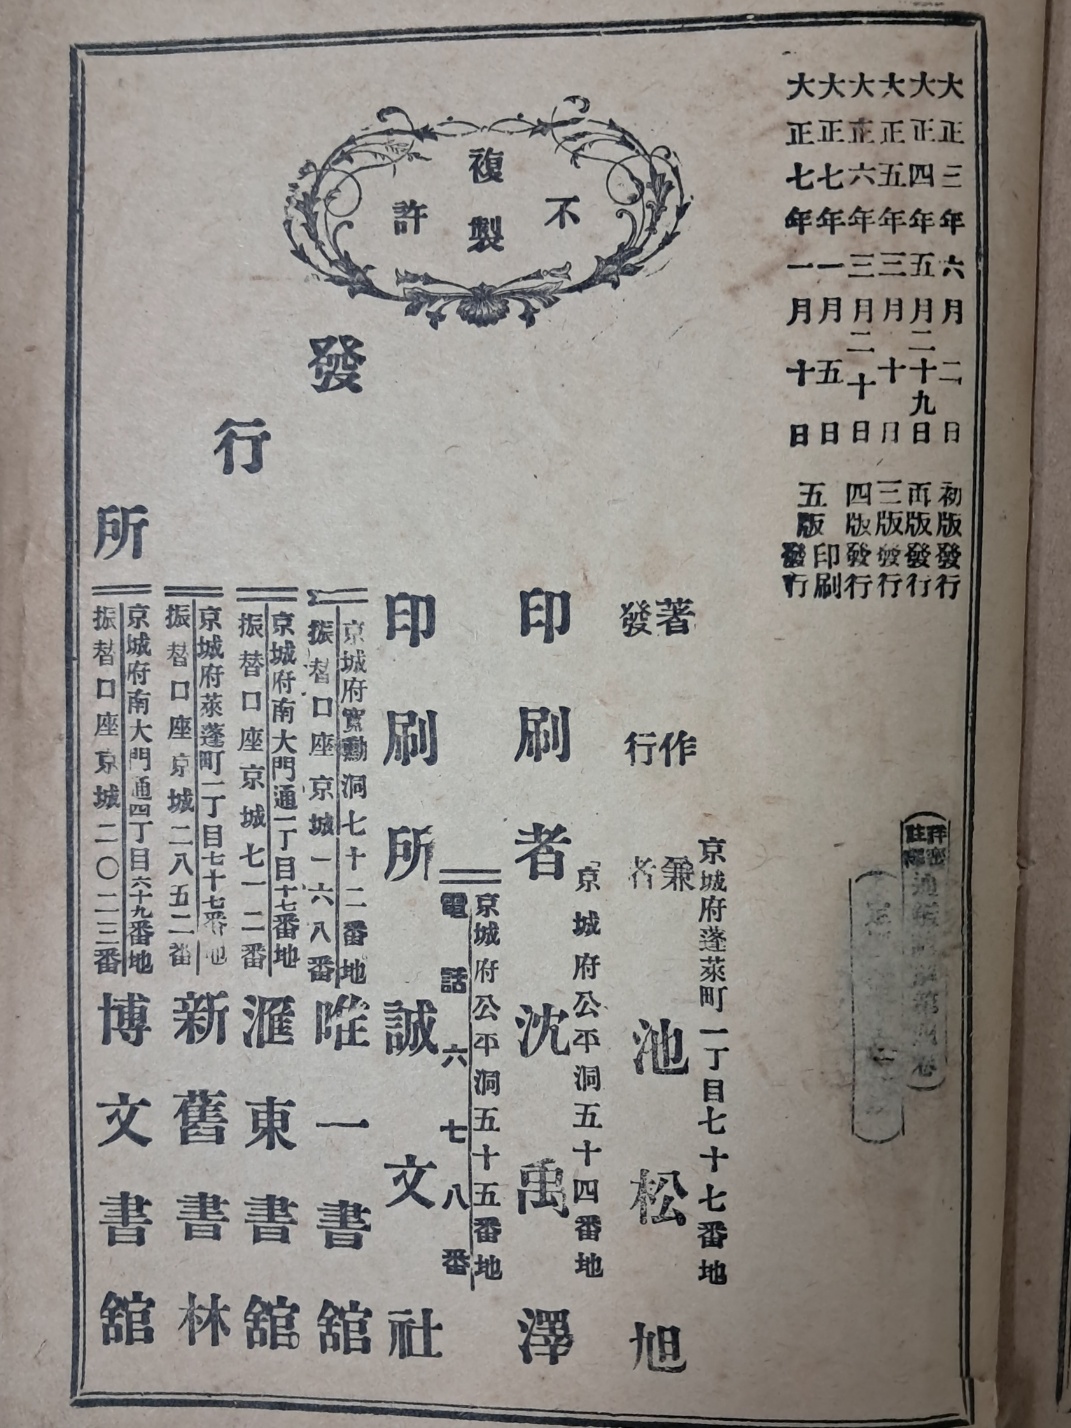 大正三年六月二日初版發行
大正四年五月二十九日再版發行
大正五年三月十日三版發行
大正六年三月二十日四版發行
大正七年一月五日
五版
印刷
大正七年一月十日
發行
不許複製
京城府蓬萊町一丁目七十七番地
著作兼
發行者
池松旭
京城府公平洞五十四番地
印刷者 沈禹澤
京城府公平洞五十五番地
電話六七八番
印刷所 誠文社
發行所
京城府寬勳洞七十二番地
振替口座京城一六八番
唯一書舘
京城府南大門通一丁目十七番地
振替口座京城七一二番
滙東書舘
京城府萊蓬町一丁目七十七番地
振替口座京城二八五二番
新舊書林
京城府南大門通四丁目六十九番地
振替口座京城二〇二三番
博文書舘